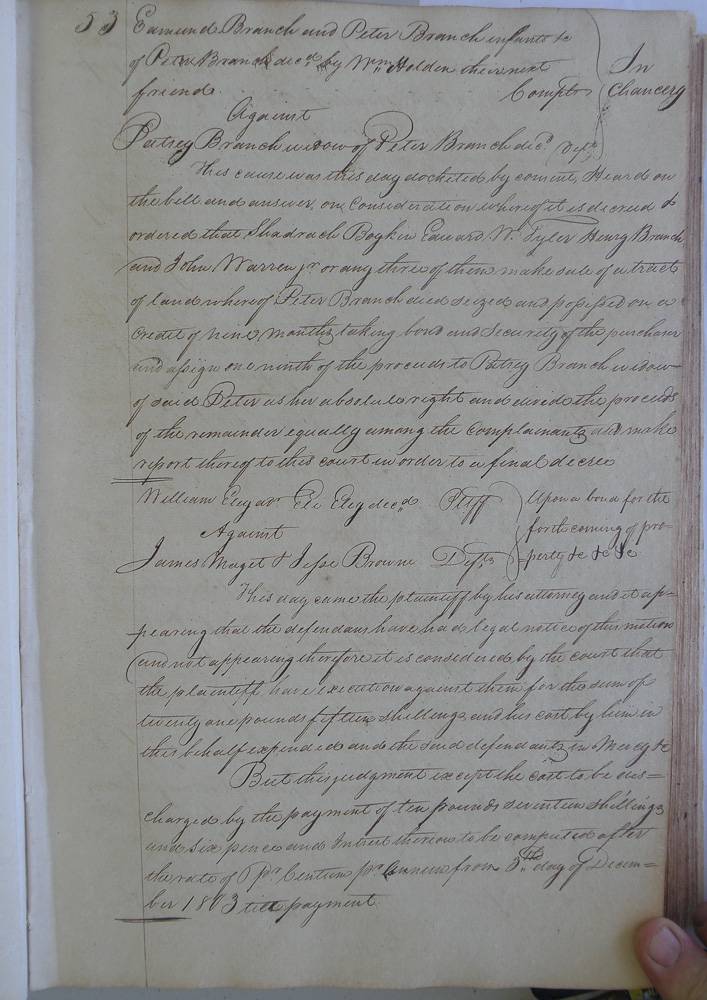 53 Edmund Branch and Peter Branch infants &c
of Peter Branch decd. by Wm. Holden their next
friend. Complts
In
Chancery
Against
Patsey Branch widow of Peter Branch decd. Deft.
This cause was this day docketed by consent, Heard on
the bill and answer, on Consideration whereof it is decreed &
ordered that Shadrach Boykin Edward W. Tyler Henry Branch
and John Warren jr. or any three of them make sale of a tract
of land whereof Peter Branch died seized and possessed on a
Credit of nine Months taking bond and Security of the purchaser
and assign one ninth of the proceeds to Patsey Branch widow
of said Peter as her absolute right and divide the proceeds
of the remainder equally among the Complainants and make
report thereof to this court in order to a final decree
William Eley adr. Eli Eley decd. Plff
Against
James Maget & Jesse Browne Defts
Upon a bond for the
forthcoming of pro-
perty &c &c &c
This day came the plaintiff by his attorney and it ap-
pearing that the defendans have had legal notice of this motion
and not appearing therefore it is considered by the court that
the plaintiff have execution against them for the sum of
twenty one pounds fifteen shillings and his cost by him in
this behalf expended and the said defendants in Mercy &c
But this judgment except the cost to be dis=
charged by the payment of ten pounds seventeen shillings
and six pence and Interest thereon to be computed after
the rate of pr. Centum pr. Annum from 5th. day of Decem-
ber 1803 till payment